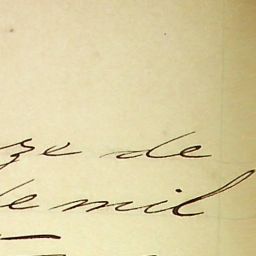 ze de
de mil